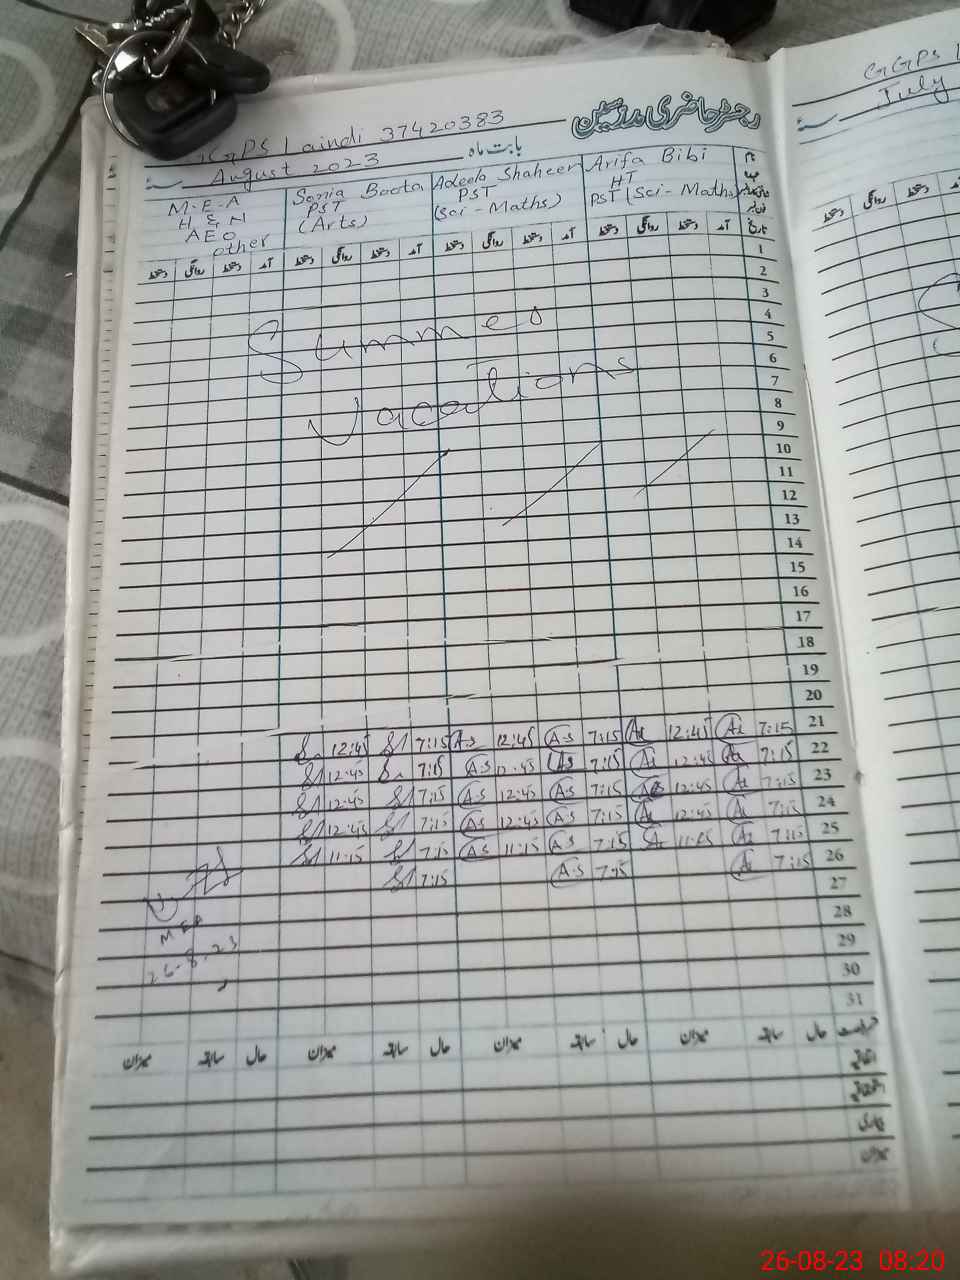 رجسٹر حاضری مدرسین
GGPS Laindi 37420383
بابت ماہ August 2023 سنہ
Arifa Bibi
HT
PST (Sci-Maths)
Adeela Shaheen
PST
(Sci-Maths)
Sonia Boota
PST
(Arts)
M.E.A
H & N
AEO
other
نام
تاریخ
آمد دستخط روانگی دستخط آمد دستخط روانگی دستخط آمد دستخط روانگی دستخط آمد دستخط روانگی دستخط
1
2
3
4
5
6
7
8
9
10
11
12
13
14
15
16
17
18
19
20
Summer
Vacations
21 7:15 Ai 12:45 Ai 7:15 A.S 12:45 A.S 7:15 12:45
22 7:15 12:45 Ai 7:15 AS 12:45 A.S 7:15 12:45
23 7:15 Ai 12:45 7:15 A.S 12:45 A.S 7:15 12:45
24 7:15 Ai 12:45 Ai 7:15 A.S 12:45 A.S 7:15 12:45
25 7:15 Ai 11:15 Ai 7:15 A.S 11:15 A.S 7:15 11:15
26 7:15 Ai 7:15 A.S 7:15
27
28
29
30
31
MEA
26-8-23
حال سابقہ میزان حال سابقہ میزان حال سابقہ میزان حال سابقہ میزان
اتفاقی
استحقاقی
بیماری
میزان
GGPS
July
سنہ
دستخط روانگی دستخط
26-08-23 08:20